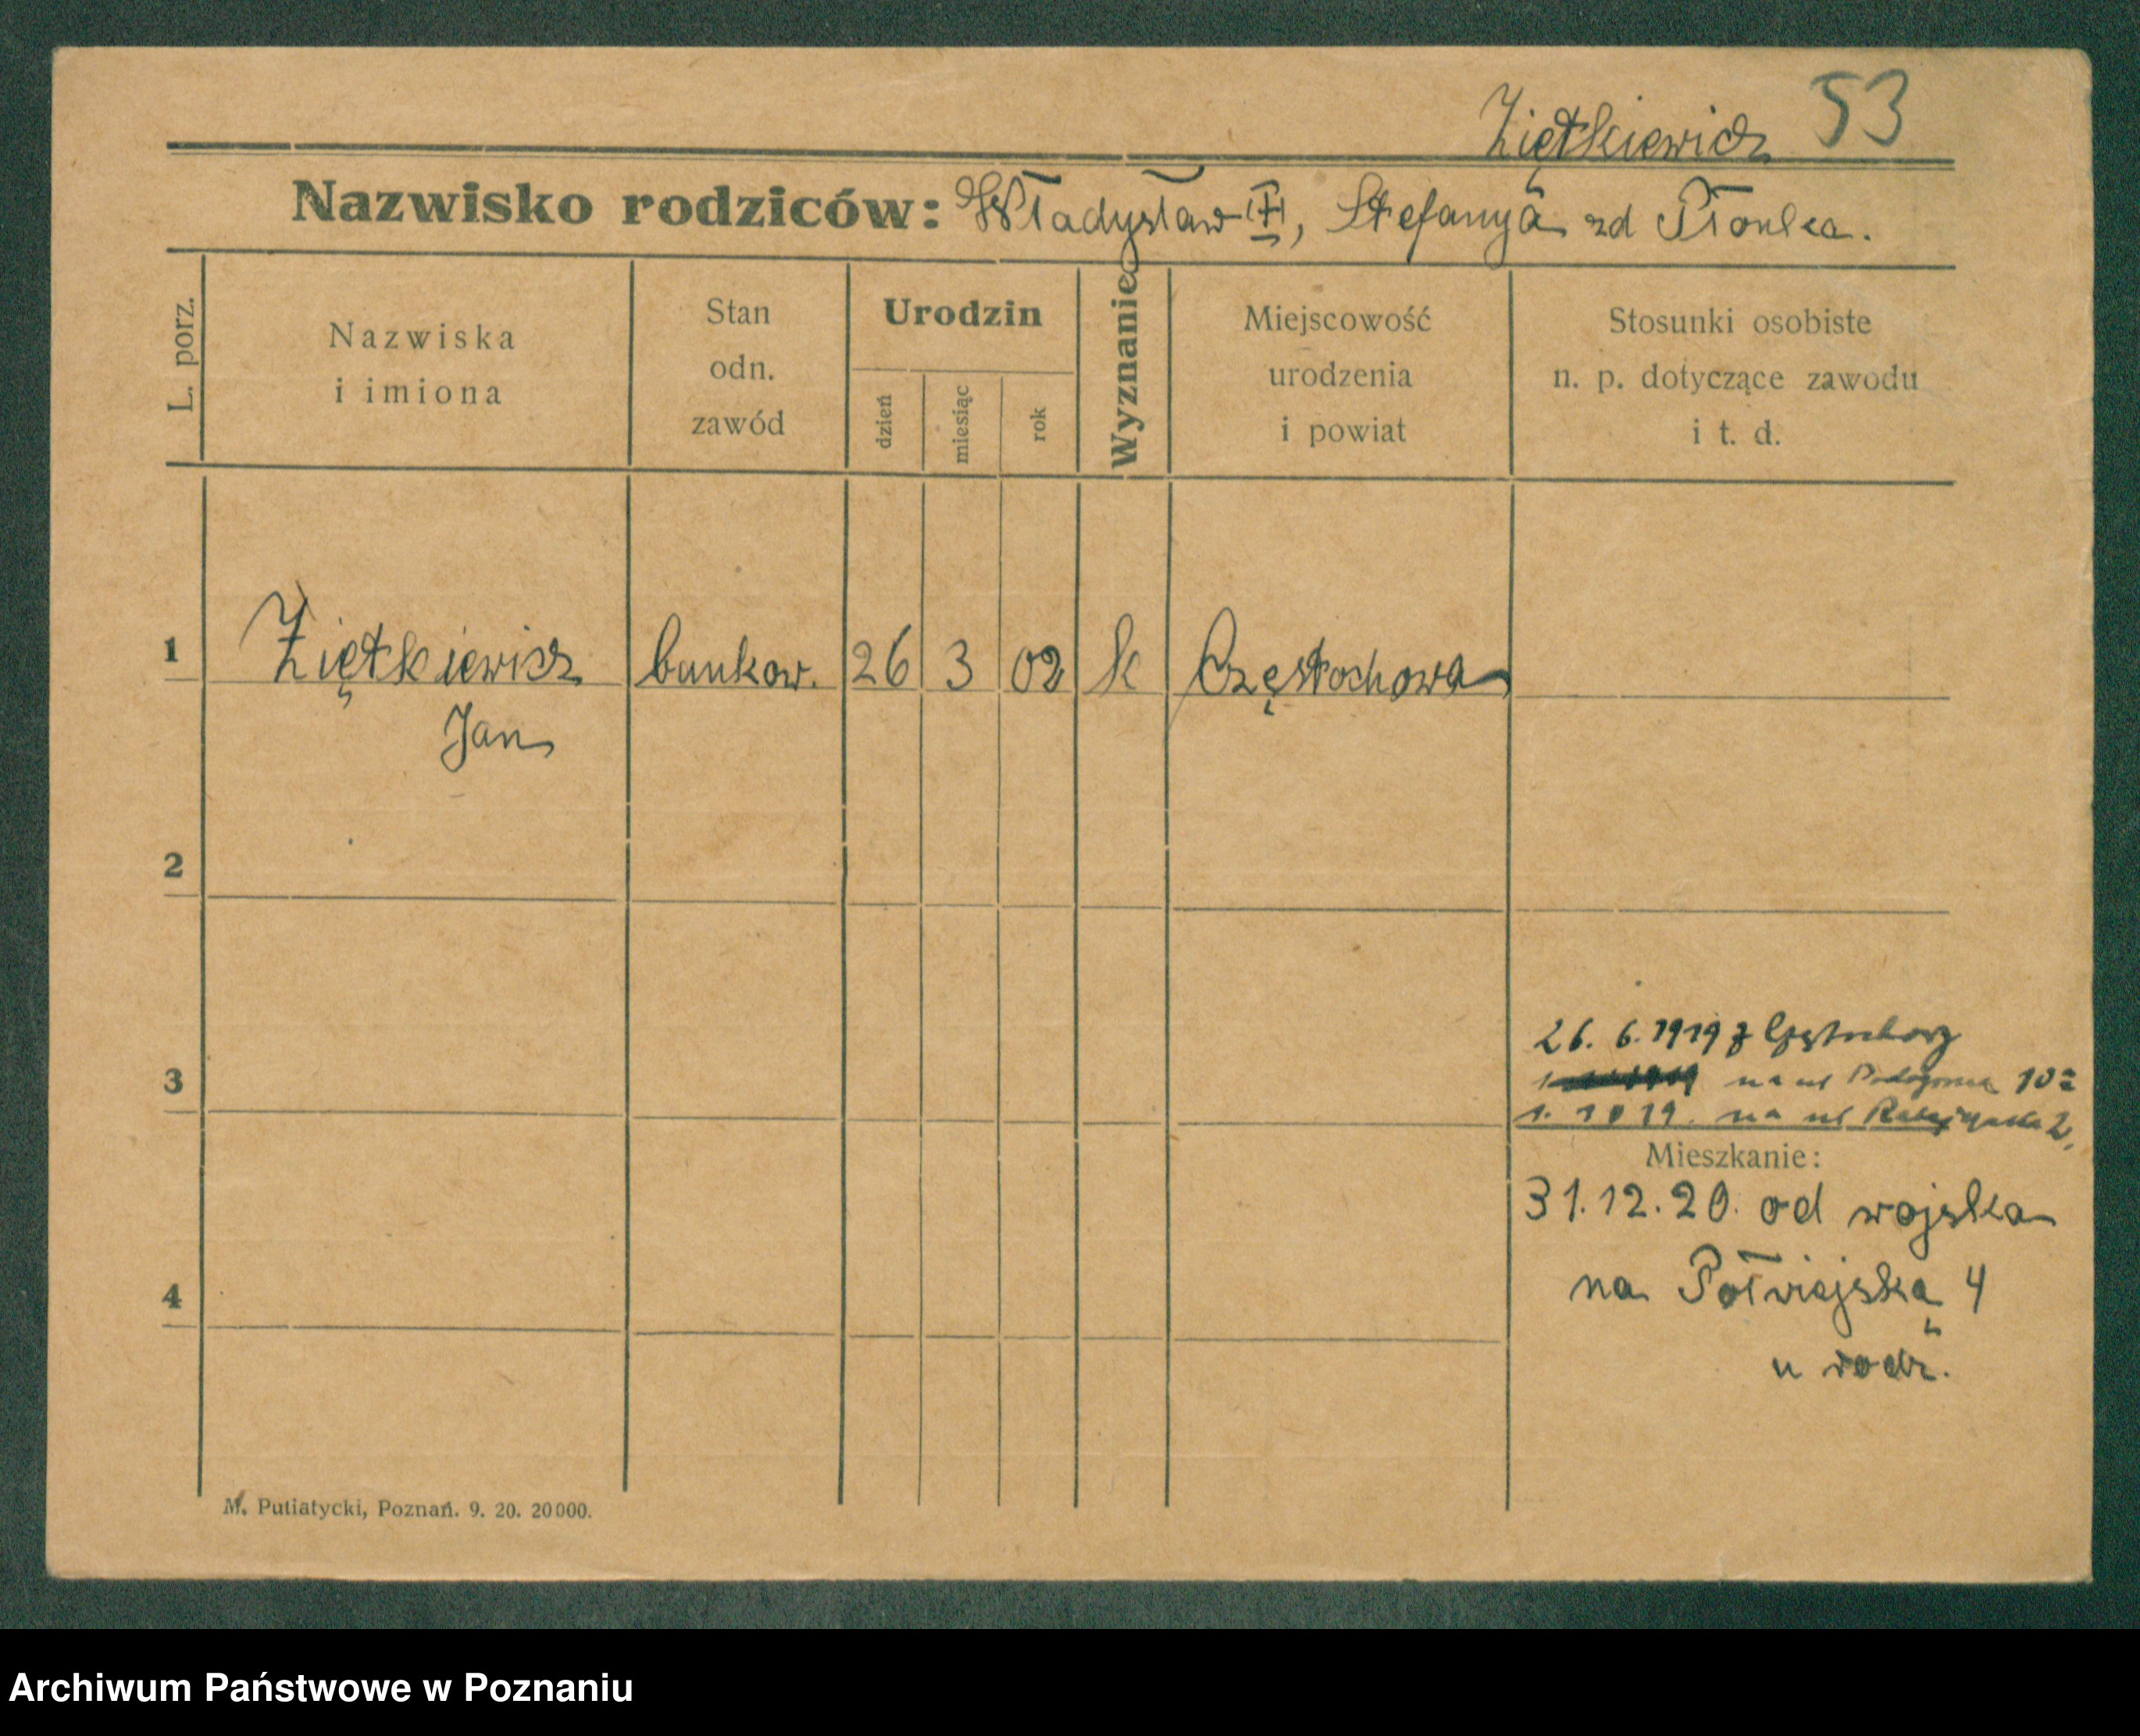 Ziętkiewicz 53
Nazwisko rodziców: Władysław III, Stefanya zd Płonka.
L. porz.
Nazwiska
i imiona
Stan
odn.
zawód
Urodzin
dzień
miesiąc
rok
Wyznanie
Miejscowość
urodzenia
i powiat
Stosunki osobiste
n. p. dotyczące zawodu
i t. d.
1 Ziętkiewicz bankow. 26 3 02 k Częstochowa
Jan
2
3
4
26. 6. 1919 z
na ul 10a
1. 10 19. na ul 2,
Mieszkanie:
31.12.20. od wojska
na Półwiejską 4
u rodz.
M. Putiatycki, Poznań. 9. 20. 20000.
Archiwum Państwowe w Poznaniu